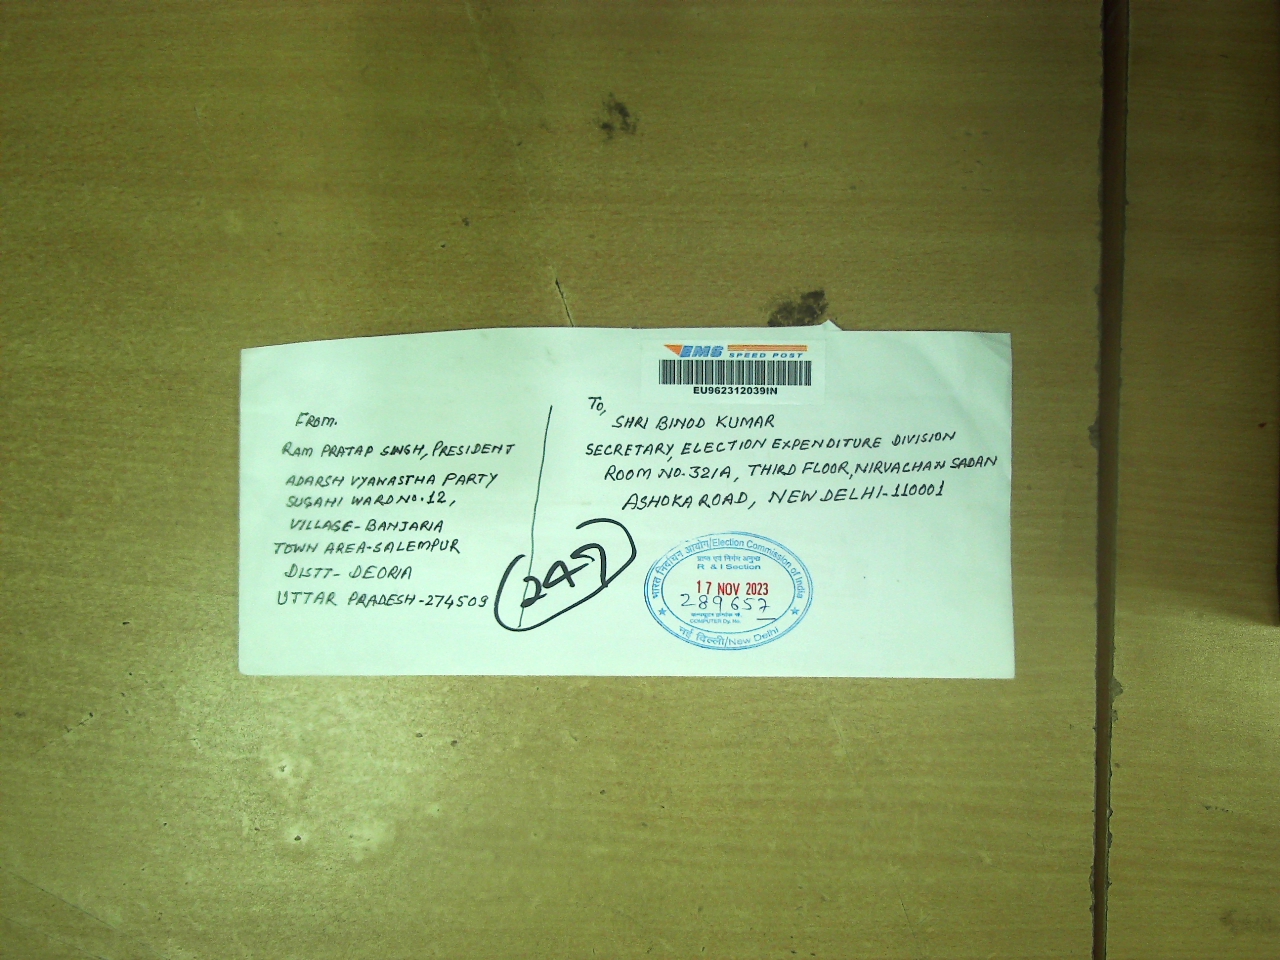 EMS SPEED POST
EU962312039IN
FROM.
RAM PRATAP SINGH, PRESIDENT
ADARSH VYAWASTHA PARTY
SUGAHI WARD NO.12,
VILLAGE-BANJARIA
TOWN AREA-SALEMPUR
DISTT- DEORIA
UTTAR PRADESH-274509
To,
SHRI BINOD KUMAR
SECRETARY, ELECTION EXPENDITURE DIVISION
ROOM NO.321A, THIRD FLOOR, NIRVACHAN SADAN
ASHOKA ROAD, NEW DELHI-110001
24-7
भारत निर्वाचन आयोग/Election Commission of India
प्राप्त एवं निर्गम अनुभाग
R & I Section
17 NOV 2023
289657
COMPUTER Dy. No.
नई दिल्ली/New Delhi